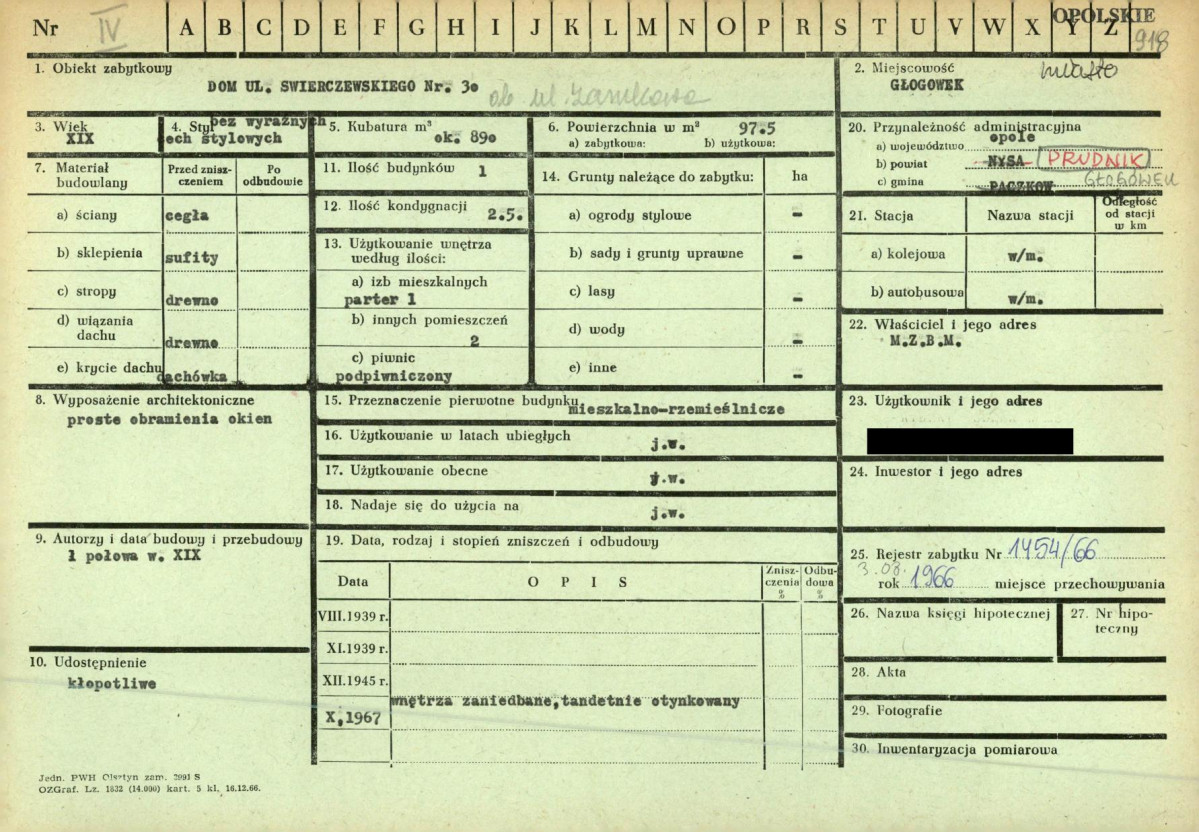 Nr IV A B C D E F G H I J K L M N O P R S T U V W X Y Z
OPOLSKIE
918
1. Obiekt zabytkowy
DOM UL. SWIERCZEWSKIEGO Nr. 3o
ob. ul. Zamkowa
2. Miejscowość
miasto
GŁOGOWEK
3. Wiek
XIX
4. Styl
bez wyraźnych
cech stylowych
5. Kubatura m³
ok. 89o
6. Powierzchnia w m² 97.5
a) zabytkowa: b) użytkowa:
20. Przynależność administracyjna
a) województwo opole
b) powiat NYSA PRUDNIK
c) gmina PACZKOW GŁOGÓWEK
7. Materiał
budowlany
Przed znisz-
czeniem
Po
odbudowie
a) ściany cegła
b) sklepienia sufity
c) stropy drewno
d) wiązania
dachu drewno
e) krycie dachu dachówka
11. Ilość budynków 1
12. Ilość kondygnacji
2.5.
13. Użytkowanie wnętrza
według ilości:
a) izb mieszkalnych
parter 1
b) innych pomieszczeń
2
c) piwnic
podpiwniczony
14. Grunty należące do zabytku: ha
a) ogrody stylowe -
b) sady i grunty uprawne -
c) lasy -
d) wody -
e) inne -
21. Stacja Nazwa stacji
Odległość
od stacji
w km
a) kolejowa w/m.
b) autobusowa w/m.
22. Właściciel i jego adres
M.Z.B.M.
8. Wyposażenie architektoniczne
proste obramienia okien
15. Przeznaczenie pierwotne budynku mieszkalno-rzemieślnicze
16. Użytkowanie w latach ubiegłych j.w.
17. Użytkowanie obecne j.w.
18. Nadaje się do użycia na j.w.
23. Użytkownik i jego adres
24. Inwestor i jego adres
9. Autorzy i data budowy i przebudowy
1 połowa w. XIX
19. Data, rodzaj i stopień zniszczeń i odbudowy
Data O P I S
Znisz-
czenia
%
Odbu-
dowa
%
VIII.1939 r.
XI.1939 r.
XII.1945 r.
X,1967 wnętrza zaniedbane,tandetnie otynkowany
25. Rejestr zabytku Nr 1454/66
3.08.
rok 1966 miejsce przechowywania
26. Nazwa księgi hipotecznej
27. Nr hipo-
teczny
28. Akta
29. Fotografie
30. Inwentaryzacja pomiarowa
10. Udostępnienie
kłopotliwe
Jedn. PWH Olsztyn zam. 2991 S
OZGraf. Lz. 1832 (14.000) kart. 5 kl. 16.12.66.